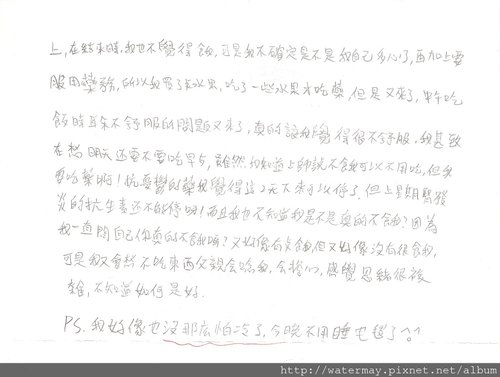 上,在結束時,我也不覺得餓,可是我不確定是不是我自己多心了,再加上要
服用藥物,所以我買了些水果,吃了一些水果才吃藥,但是又來了,中午吃
飯時又不舒服的問題又來了,真的讓我覺得很不舒服,我甚致
在想明天還要不要吃早点,雖然我知道上師說不餓可以不用吃,但我
要吃藥啊!抗憂鬱的藥我覺得這2天下來可以停了,但上星期醫發
炎的抗生素還不能停啊!而且我也不知道我是不是真的不餓?因為
我一直問自己你真的不餓嗎?又好像有点餓,但又好像沒有很餓,
可是我又會想不吃東西父親會唸我,會擔心,感覺思緒很複
雜,不知道如何是好.
PS.我好像也沒那広怕冷了,今晚不用睡也毯了^^
http://watermay.pixnet.net/album